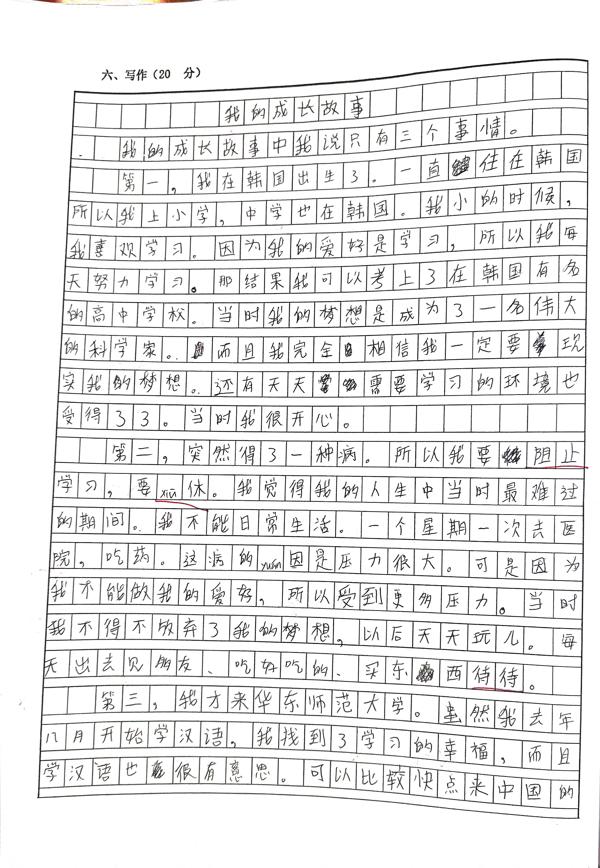 六、写作(20 分)
我的成长故事
我的成长故事中我说只有三个事情。
第一,我在韩国出生了。一直住在韩国
所以我上小学,中学也在韩国。我小的时候,
我喜欢学习。因为我的爱好是学习,所以我每
天努力学习。那结果我可以考上了在韩国有名
的高中学校。当时我的梦想是成为了一名伟大
的科学家。而且我完全相信我一定要现
实我的梦想。还有天天需要学习的环境也
受得了了。当时我很开心。
第二,突然得了一种病。所以我要阻止
学习,要xiū休。我觉得我的人生中当时最难过
的期间。我不能日常生活。一个星期一次去医
院,吃药。这病的yuán因是压力很大。可是因为
我不能做我的爱好,所以受到更多压力。当时
我不得不放弃了我的梦想,以后天天玩儿。每
天出去见朋友、吃好吃的、买东西待待。
第三,我才来华东师范大学。虽然我去年
12月开始学汉语,我找到了学习的幸福,而且
学汉语也很有意思。可以比较快点来中国的